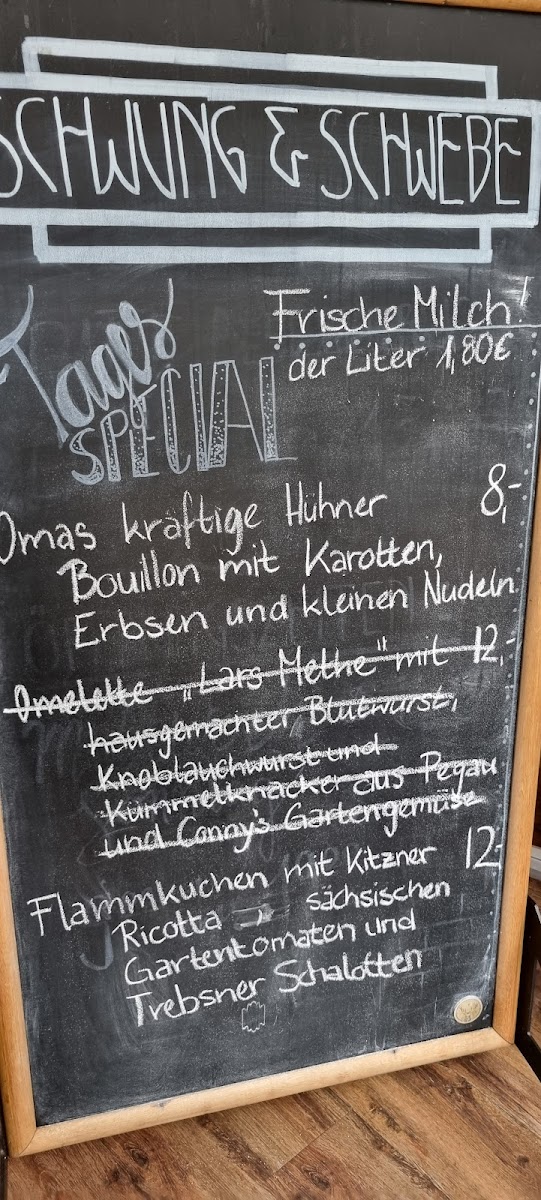 SCHWUNG & SCHWEBE
Frische Milch!
der Liter 1,80€
Tages
SPECIAL
Omas kräftige Hühner 8,-
Bouillon mit Karotten,
Erbsen und kleinen Nudeln
Omelette „Lars Methe" mit 12,-
hausgemachter Blutwurst,
Knoblauchwurst und
Kümmelknacker aus Pegau
und Conny's Gartengemüse
Flammkuchen mit Kitzner 12,-
Ricotta sächsischen
Gartentomaten und
Trebsner Schalotten